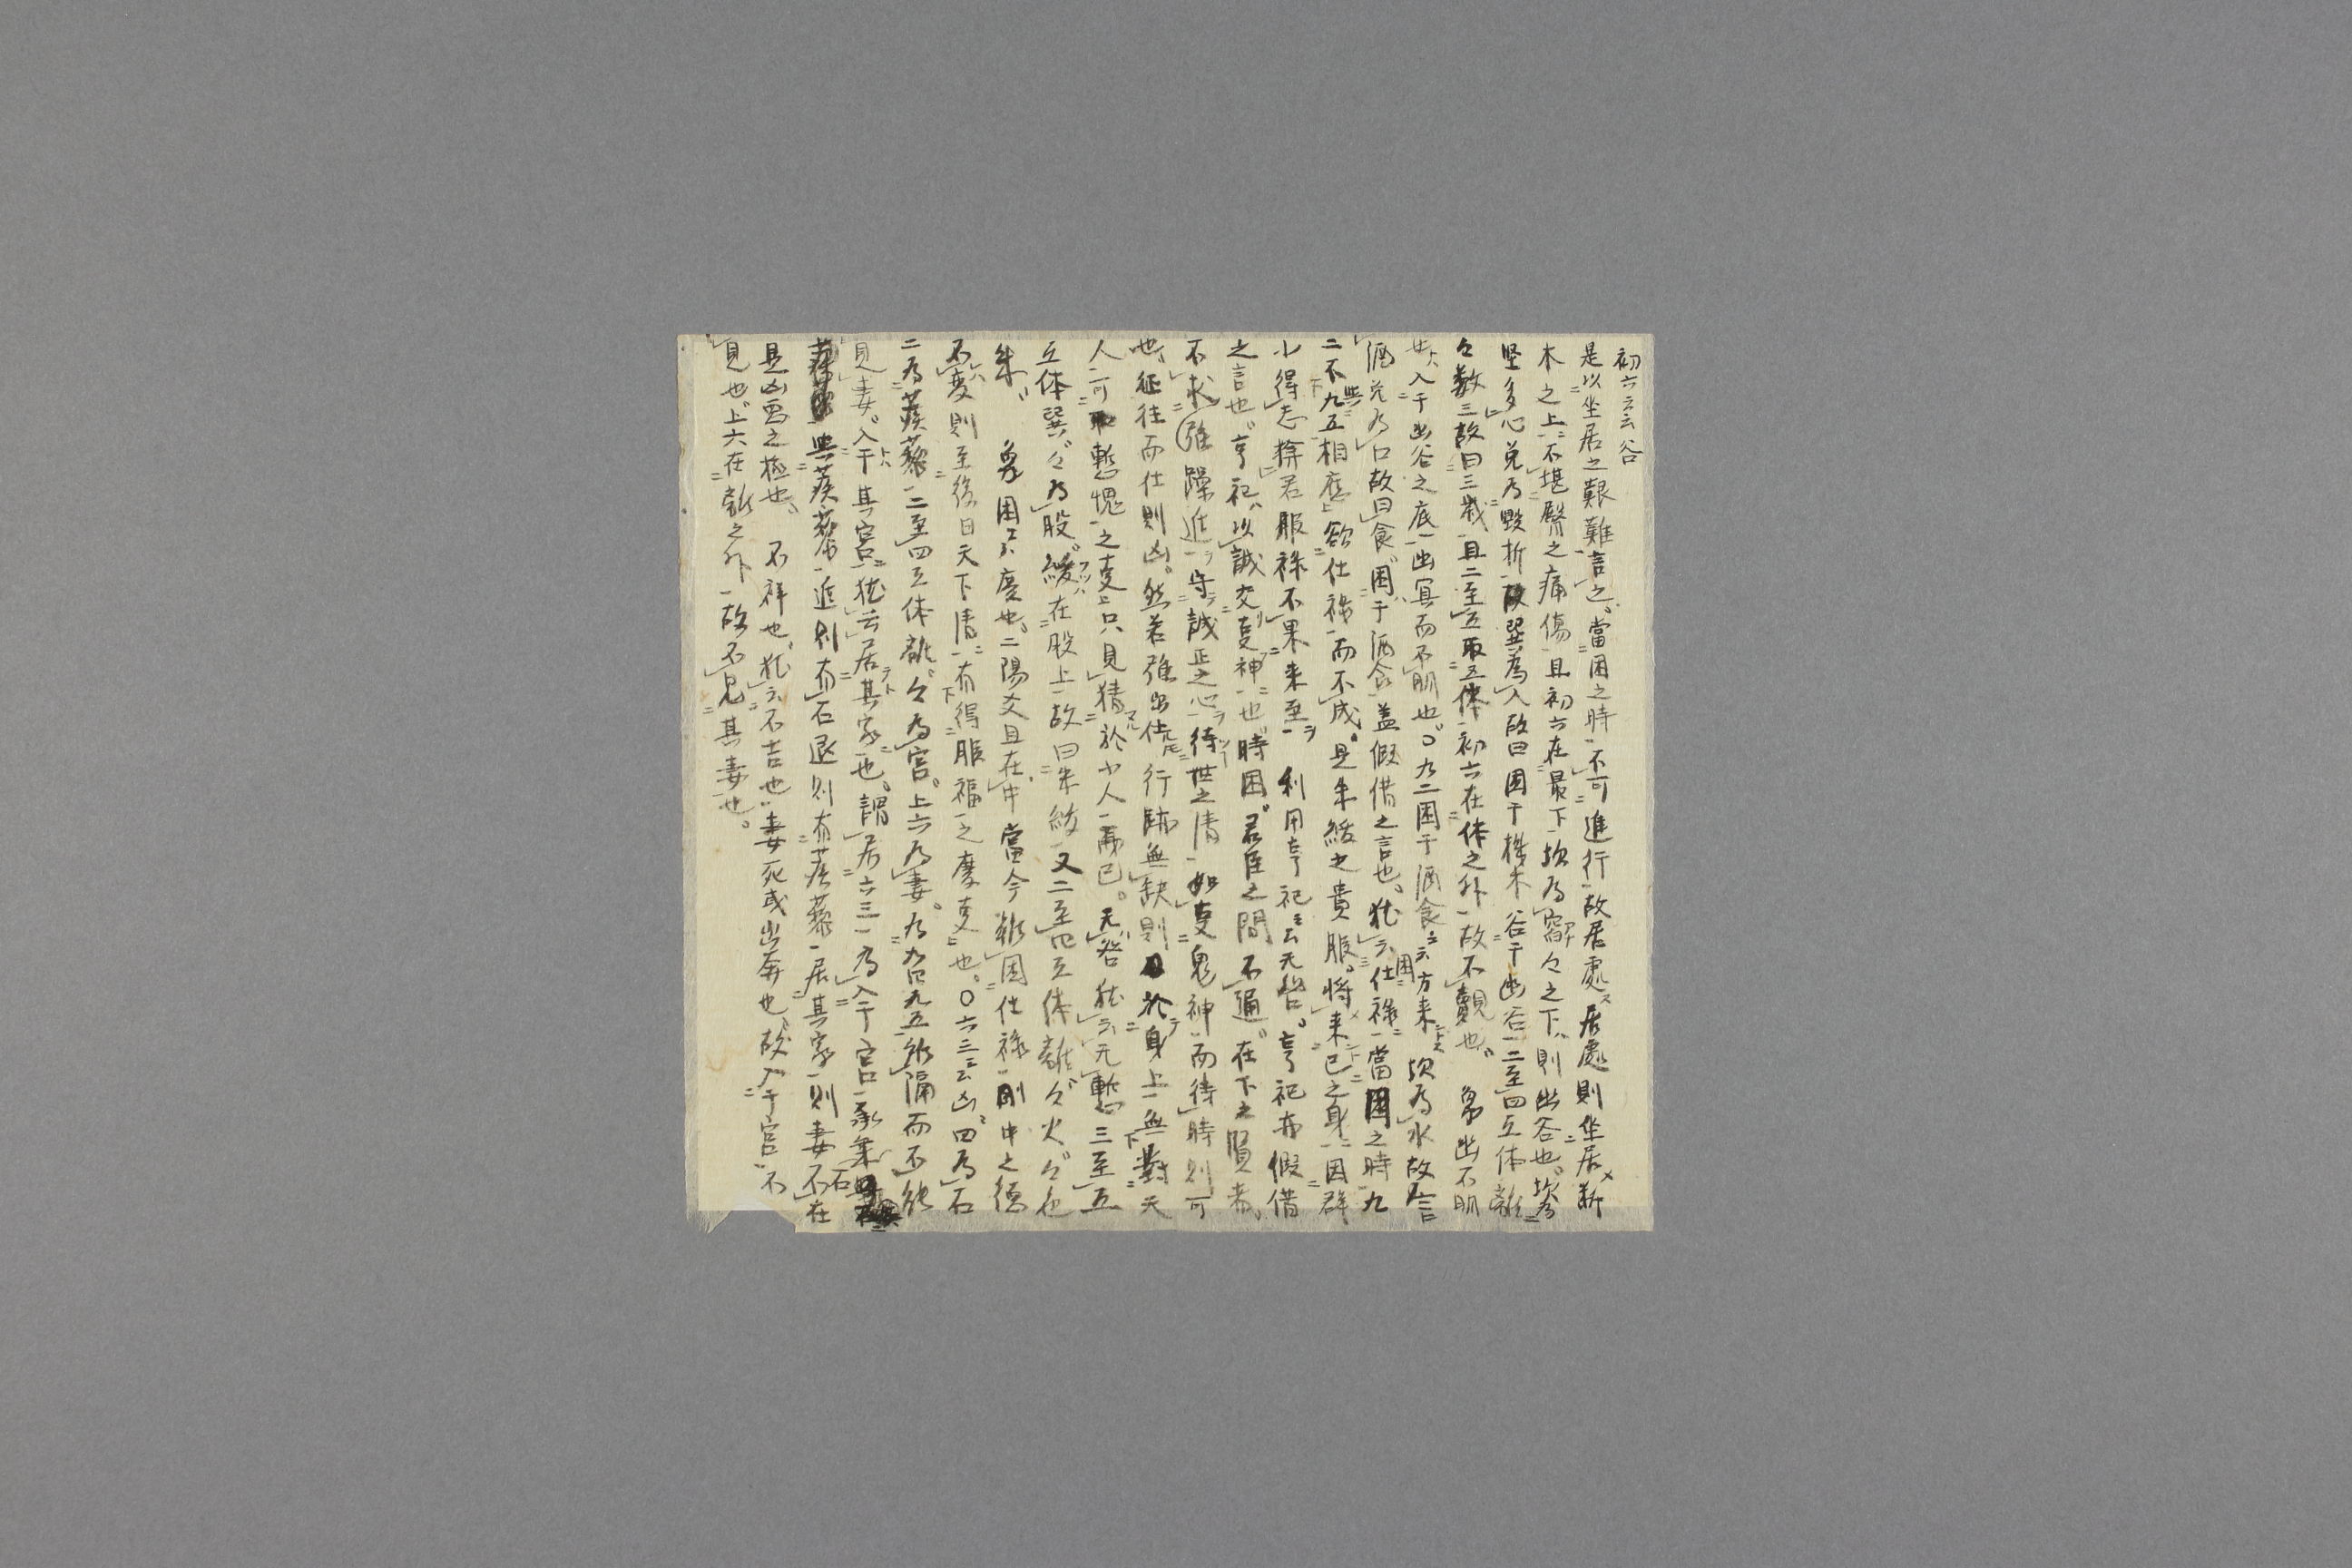 初六云云谷
是以坐居之艱難言之當困之時不可進行故居處居處則坐居株
木之上不堪臀之痛傷且初六在最下坎為窞々之下則幽谷也坎為
堅多心兌為毀折故巽為入故曰困于株木谷于幽谷二至四互体離
々数三故曰三歳且二至五取互体初六在体之外故不覿也 象幽不明
也入于幽谷之底幽冥而不明也〇九二困于酒食云云方来坎為水故言
酒兌為口故曰食困于酒食蓋假借之言也猶云困仕禄當困之時九
二不與九五相應欲仕禄而不成是朱紱之貴服将来已之身因群
小得志捨君服禄不果来至 利用亨祀云云无咎亨祀亦假借
之言也亨祀以誠交事神也時困君臣之間不通在下之賢者
不求強躁進守誠正之心待世之清如事鬼神而待時則可
也征往而仕則凶然若強出仕行跡無缺則於身上無對天
人可慙愧之事只見猜於小人而已无咎猶云无慙三至五
互体巽々為股紱在股上故曰朱紱又二至四互体離々火々色
朱 象困云云慶也二陽爻且在中當今雖困仕禄剛中之德
不變則至後日天下清有得服福之慶事也〇六三云云凶四為石
二為蒺藜二至四互体離々為宮上六為妻為九四九五所隔而不能
見妻入于其宮猶云居其家也謂居六三為入于宮承乗石
與蒺藜進則有石退則有蒺藜居其家則妻不在
是凶禍之極也 不祥也猶云不吉也妻死或出奔也故入于宮不
見也上六在離之外故不見其妻也